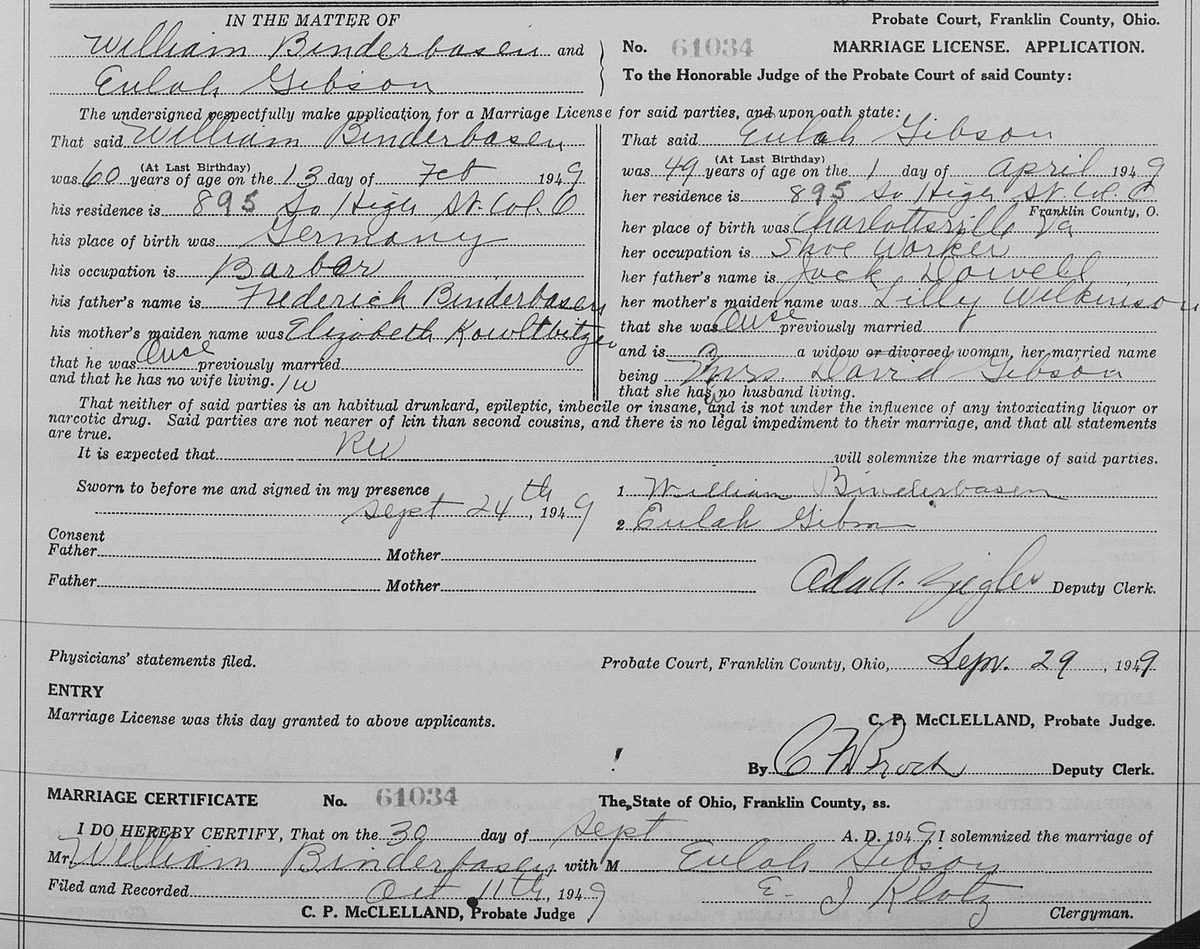 IN THE MATTER OF
William Binderbasen and
Eulah Gibson
Probate Court, Franklin County, Ohio.
No. 61034 MARRIAGE LICENSE. APPLICATION.
To the Honorable Judge of the Probate Court of said County:
The undersigned respectfully make application for a Marriage License for said parties, and upon oath state:
That said William Binderbasen
(At Last Birthday)
was 60 years of age on the 13 day of Feb 1949
his residence is 895 So High St. Col. O
his place of birth was Germany
his occupation is Barber
his father's name is Frederich Binderbasen
his mother's maiden name was Elizabeth
that he was Once previously married
and that he has no wife living. 1w
That said Eulah Gibson
(At Last Birthday)
was 49 years of age on the 1 day of April 1949
her residence is 895 So High St. Col. O
Franklin County, O.
her place of birth was Charlottsville Va
her occupation is Shoe Worker
her father's name is Jack Dowell
her mother's maiden name was Lilly Wilkinson
that she was Once previously married
and is a widow or divorced woman, her married name
being Mrs. David Gibson
that she has no husband living.
That neither of said parties is an habitual drunkard, epileptic, imbecile or insane, and is not under the influence of any intoxicating liquor or
narcotic drug. Said parties are not nearer of kin than second cousins, and there is no legal impediment to their marriage, and that all statements
are true.
It is expected that Rev will solemnize the marriage of said parties.
Sworn to before me and signed in my presence
Sept 24th, 1949
1 William Binderbasen
2 Eulah Gibson
Consent
Father Mother
Father Mother
Ada A. Zigler Deputy Clerk.
Physicians' statements filed.
Probate Court, Franklin County, Ohio, Sep. 29, 1949
ENTRY
Marriage License was this day granted to above applicants.
C. P. McCLELLAND, Probate Judge.
By C F Brock Deputy Clerk.
MARRIAGE CERTIFICATE No. 61034 The State of Ohio, Franklin County, ss.
I DO HEREBY CERTIFY, That on the 30 day of Sept A. D. 1949 I solemnized the marriage of
Mr. William Binderbasen with M Eulah Gibson
Filed and Recorded Oct 11th, 1949 E. J Klotz
C. P. McCLELLAND, Probate Judge Clergyman.